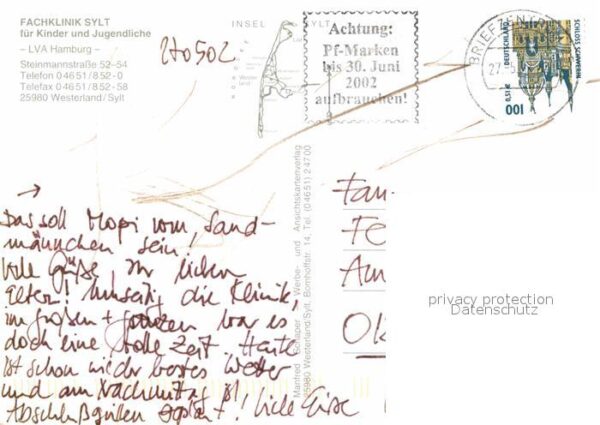 FACHKLINIK SYLT
für Kinder und Jugendliche
– LVA Hamburg –
Steinmannstraße 52–54
Telefon 04651/852-0
Telefax 04651/852-58
25980 Westerland/Sylt
270502
INSEL SYLT
Achtung:
Pf-Marken
bis 30. Juni
2002
aufbrauchen!
BRIEFZEN
27.5
DEUTSCHLAND
SCHLOSS SCHWERIN
0,51 €
100
→
Das soll Mopi vom Sand-
männchen sein!
Viele Grüße Ihr lieben
Eltern! Umseitig die Klinik,
im großen + ganzen war es
doch eine tolle Zeit Heute
ist schon wieder bestes Wetter
und am Nachmittag ist
Abschlußgrillen geplant! Viele Grüße
Werbe- und Ansichtskartenverlag
25980 Westerland/Sylt, Bomhoffstr. 14, Tel. (04651) 24700
Fam
Fe
Am
Ok
privacy protection
Datenschutz